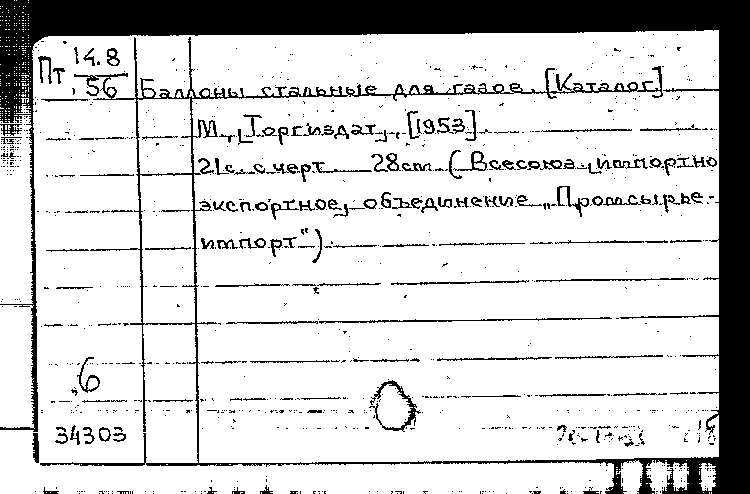 Пт 14.8
56
Баллоны стальные для газов. [Каталог]
М., Торгиздат, [1953].
21с. с черт. 28см (Всесоюз. импортно
экспортное, объединение „Промсырье-
импорт").
6
34303